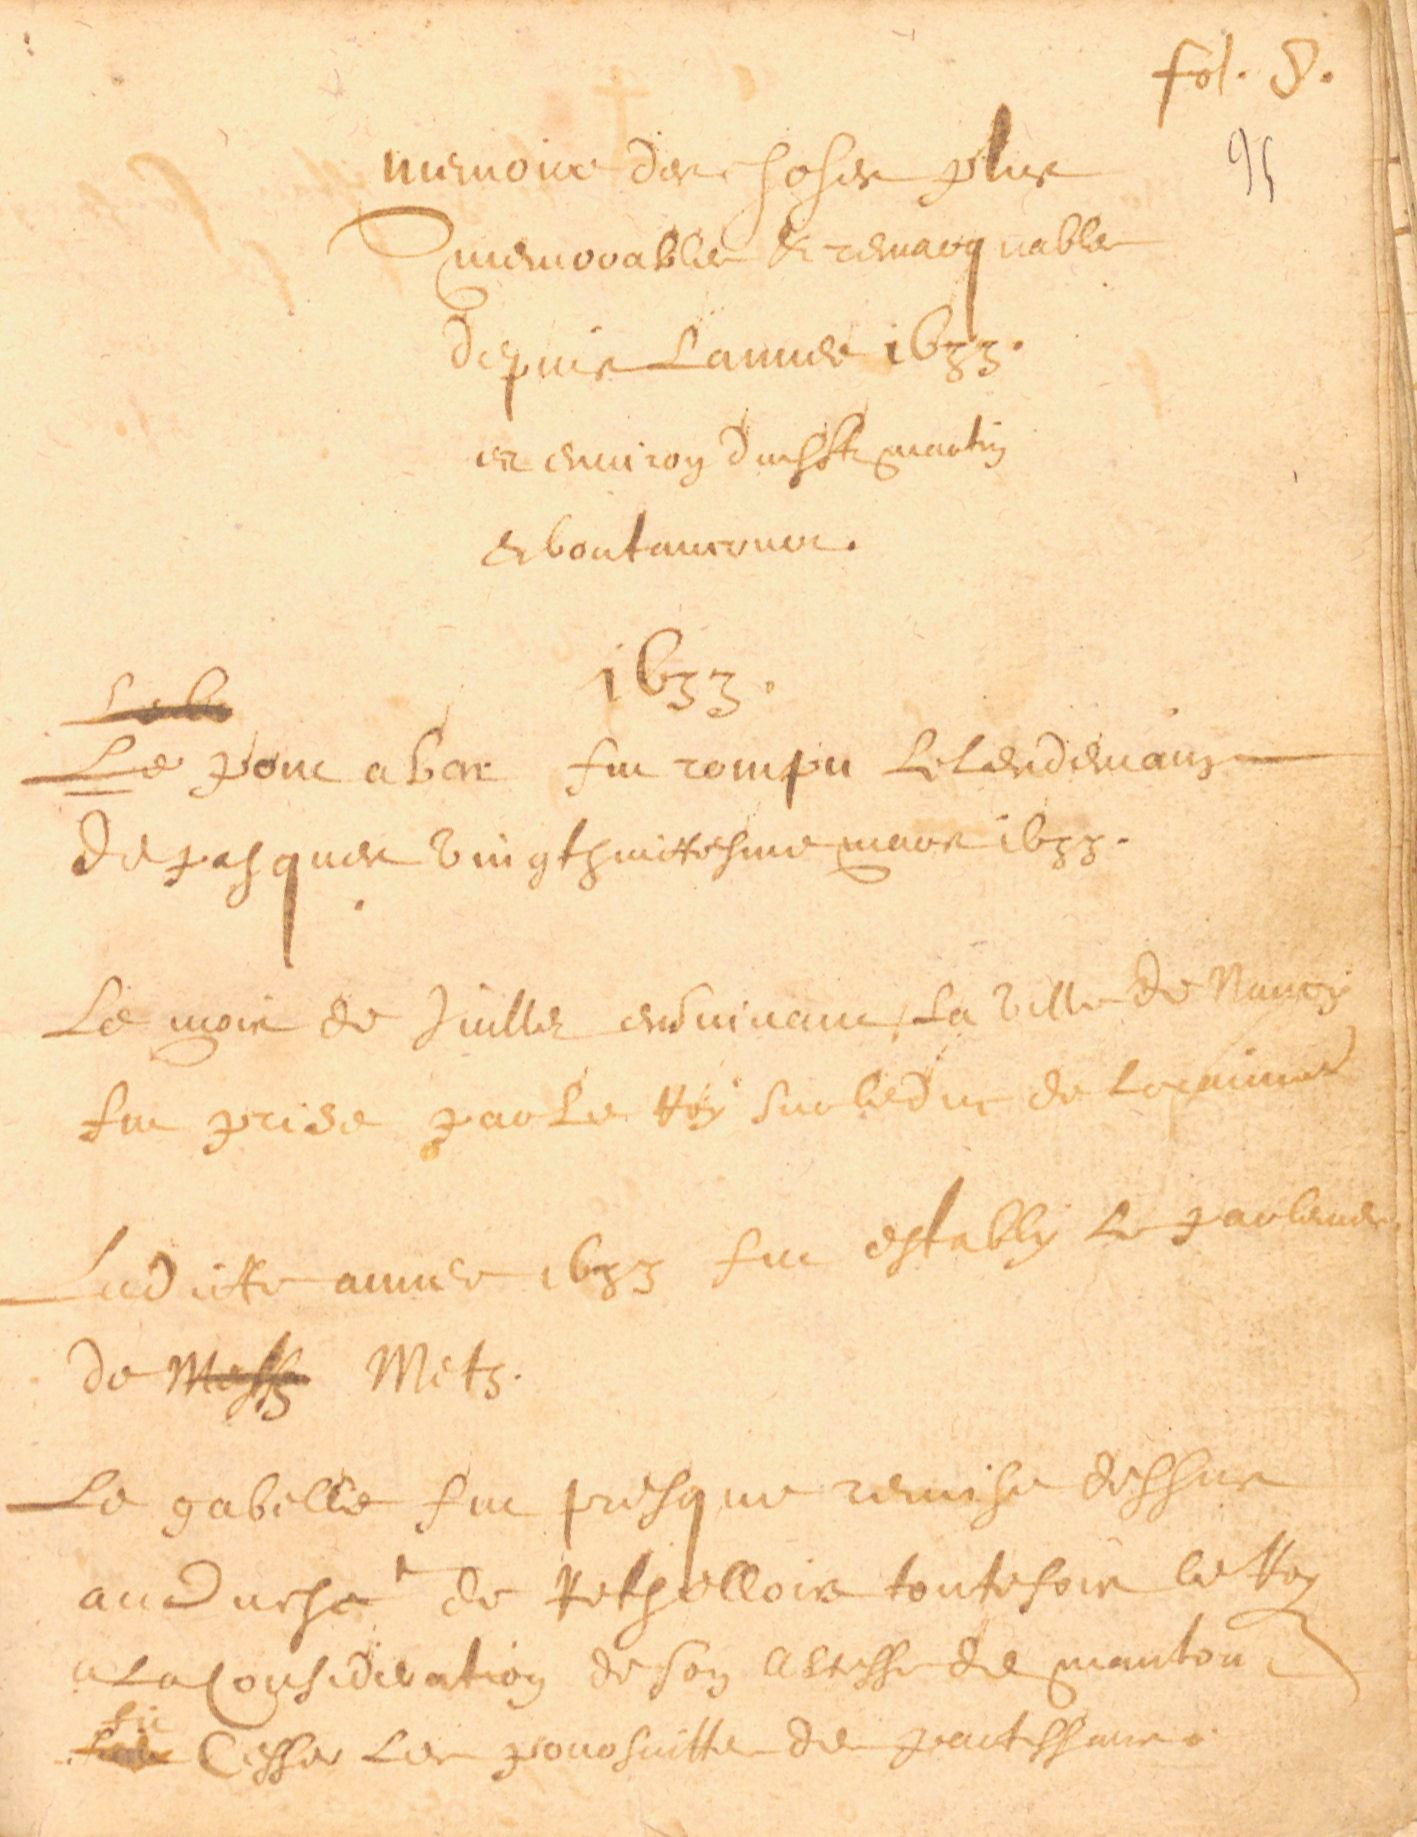 fol. 8.
95
Memoire des choses plus
memorables & remarquables
depuis Lannee 1633.
et environ duchst martin
& boutancour.
1633.
Le pont a bar fut rompu le lendemain
de pasques vingt huittesme mars 1633.
Le mois de Juillet ensuivant, la ville de Nancy
fut prise par le Roy sur le duc de Loraine
Ladicte annee 1633 fut estably le parlement
de Metz.
La gabelle fut presque remise dessus
au Duché de Rethellois toutefois le Roy
a la Consideration de son altesse de mantou
fit Cesser les poursuittes des partissans.